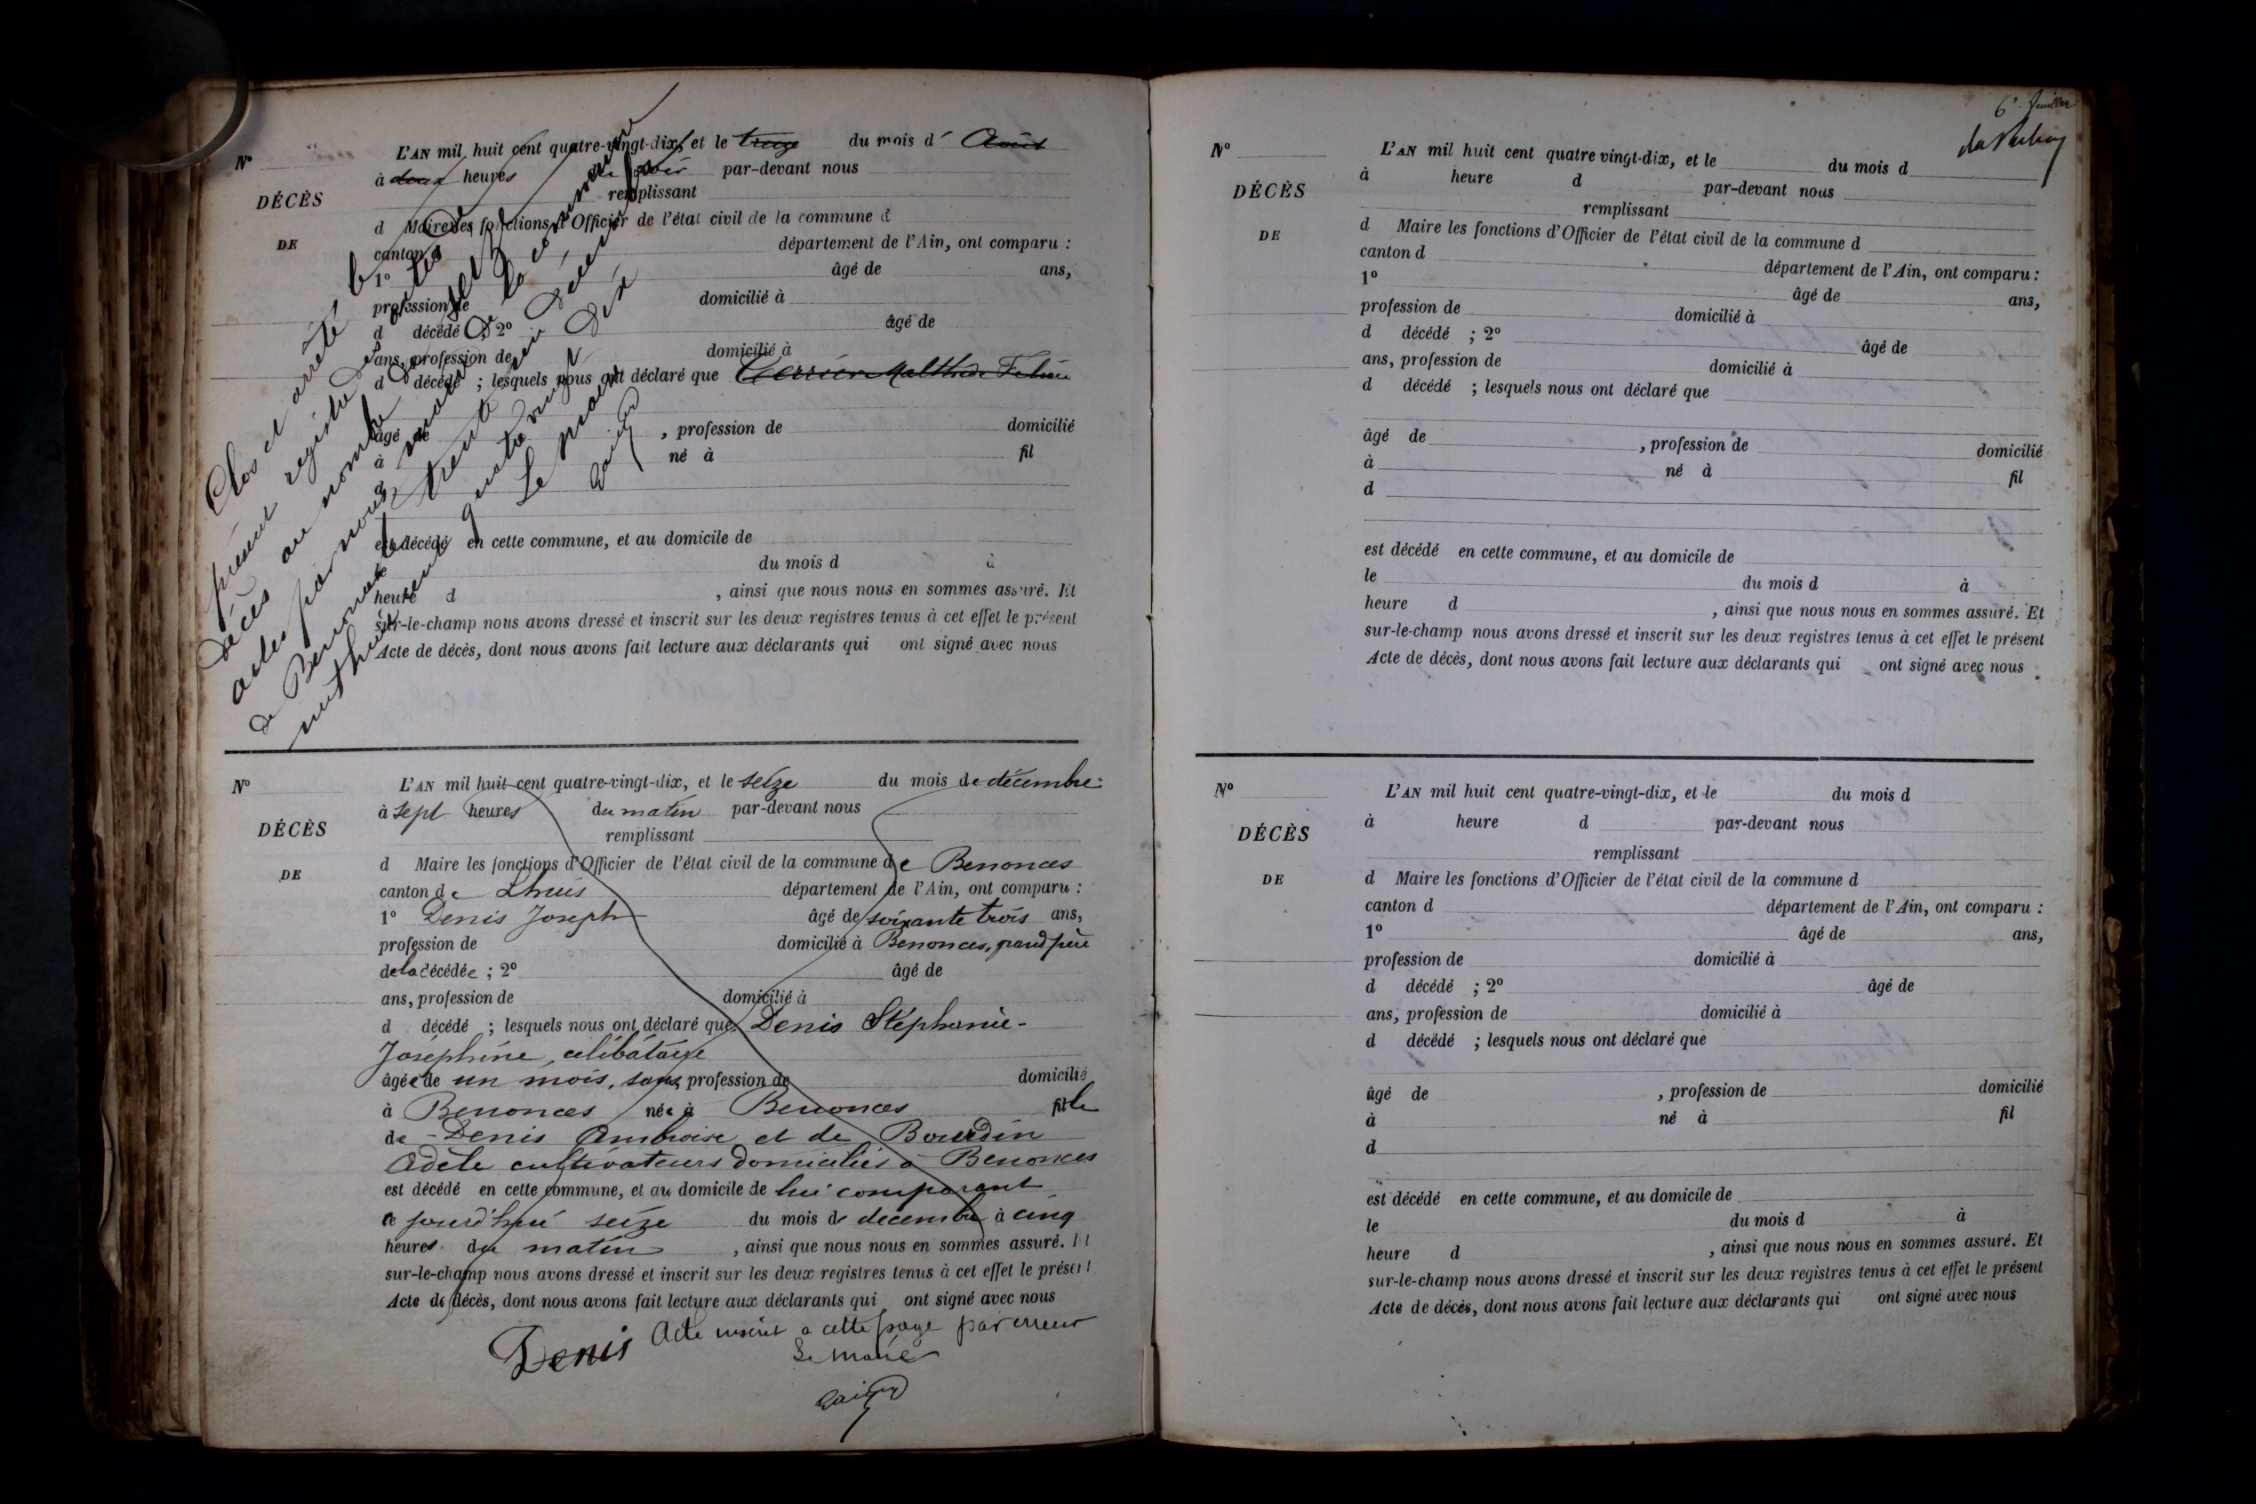 Nº
DÉCÈS
DE
L'AN mil huit cent quatre-vingt-dix, et le treize du mois d' Août
à deux heures du soir par-devant nous
remplissant
d Maire les fonctions d'Officier de l'état civil de la commune d
canton d département de l'Ain, ont comparu :
1º âgé de ans,
profession de domicilié à
d décédé ; 2º âgé de
ans, profession de domicilié à
d décédé ; lesquels nous ont déclaré que
âgé de , profession de domicilié
à né à fil
d
est décédé en cette commune, et au domicile de
le du mois d à
heure d , ainsi que nous nous en sommes assuré. Et
sur-le-champ nous avons dressé et inscrit sur les deux registres tenus à cet effet le présent
Acte de décès, dont nous avons fait lecture aux déclarants qui ont signé avec nous
Clos et arrêté le
présent registre des actes de
décès au nombre de
actes par nous maire de la commune
de Benonces le trente un décembre
mil huit cent quatre vingt dix
Le maire
Nº
DÉCÈS
DE
L'AN mil huit cent quatre-vingt-dix, et le seize du mois de décembre
à sept heures du matin par-devant nous
remplissant
d Maire les fonctions d'Officier de l'état civil de la commune de Benonces
canton de Lhuis département de l'Ain, ont comparu :
1º Denis Joseph âgé de soixante trois ans,
profession de domicilié à Benonces, grand père
de la décédée ; 2º âgé de
ans, profession de domicilié à
d décédé ; lesquels nous ont déclaré que Denis Stéphanie-
Joséphine, célibataire
âgée de un mois, sans profession de domicilié
à Benonces née à Benonces fille
de Denis Ambroise et de Bourdin
Adèle cultivateurs domiciliés à Benonces
est décédé en cette commune, et au domicile de lui comparant
ce jourd'hui seize du mois de décembre à cinq
heures du matin , ainsi que nous nous en sommes assuré. Et
sur-le-champ nous avons dressé et inscrit sur les deux registres tenus à cet effet le présent
Acte de décès, dont nous avons fait lecture aux déclarants qui ont signé avec nous
Denis Acte inscrit a cette page par erreur
Le maire
6e feuillet
Nº
DÉCÈS
DE
L'AN mil huit cent quatre vingt-dix, et le du mois d
à heure d par-devant nous
remplissant
d Maire les fonctions d'Officier de l'état civil de la commune d
canton d département de l'Ain, ont comparu :
1º âgé de ans,
profession de domicilié à
d décédé ; 2º âgé de
ans, profession de domicilié à
d décédé ; lesquels nous ont déclaré que
âgé de , profession de domicilié
à né à fil
d
est décédé en cette commune, et au domicile de
le du mois d à
heure d , ainsi que nous nous en sommes assuré. Et
sur-le-champ nous avons dressé et inscrit sur les deux registres tenus à cet effet le présent
Acte de décès, dont nous avons fait lecture aux déclarants qui ont signé avec nous
Nº
DÉCÈS
DE
L'AN mil huit cent quatre-vingt-dix, et le du mois d
à heure d par-devant nous
remplissant
d Maire les fonctions d'Officier de l'état civil de la commune d
canton d département de l'Ain, ont comparu :
1º âgé de ans,
profession de domicilié à
d décédé ; 2º âgé de
ans, profession de domicilié à
d décédé ; lesquels nous ont déclaré que
âgé de , profession de domicilié
à né à fil
d
est décédé en cette commune, et au domicile de
le du mois d à
heure d , ainsi que nous nous en sommes assuré. Et
sur-le-champ nous avons dressé et inscrit sur les deux registres tenus à cet effet le présent
Acte de décès, dont nous avons fait lecture aux déclarants qui ont signé avec nous